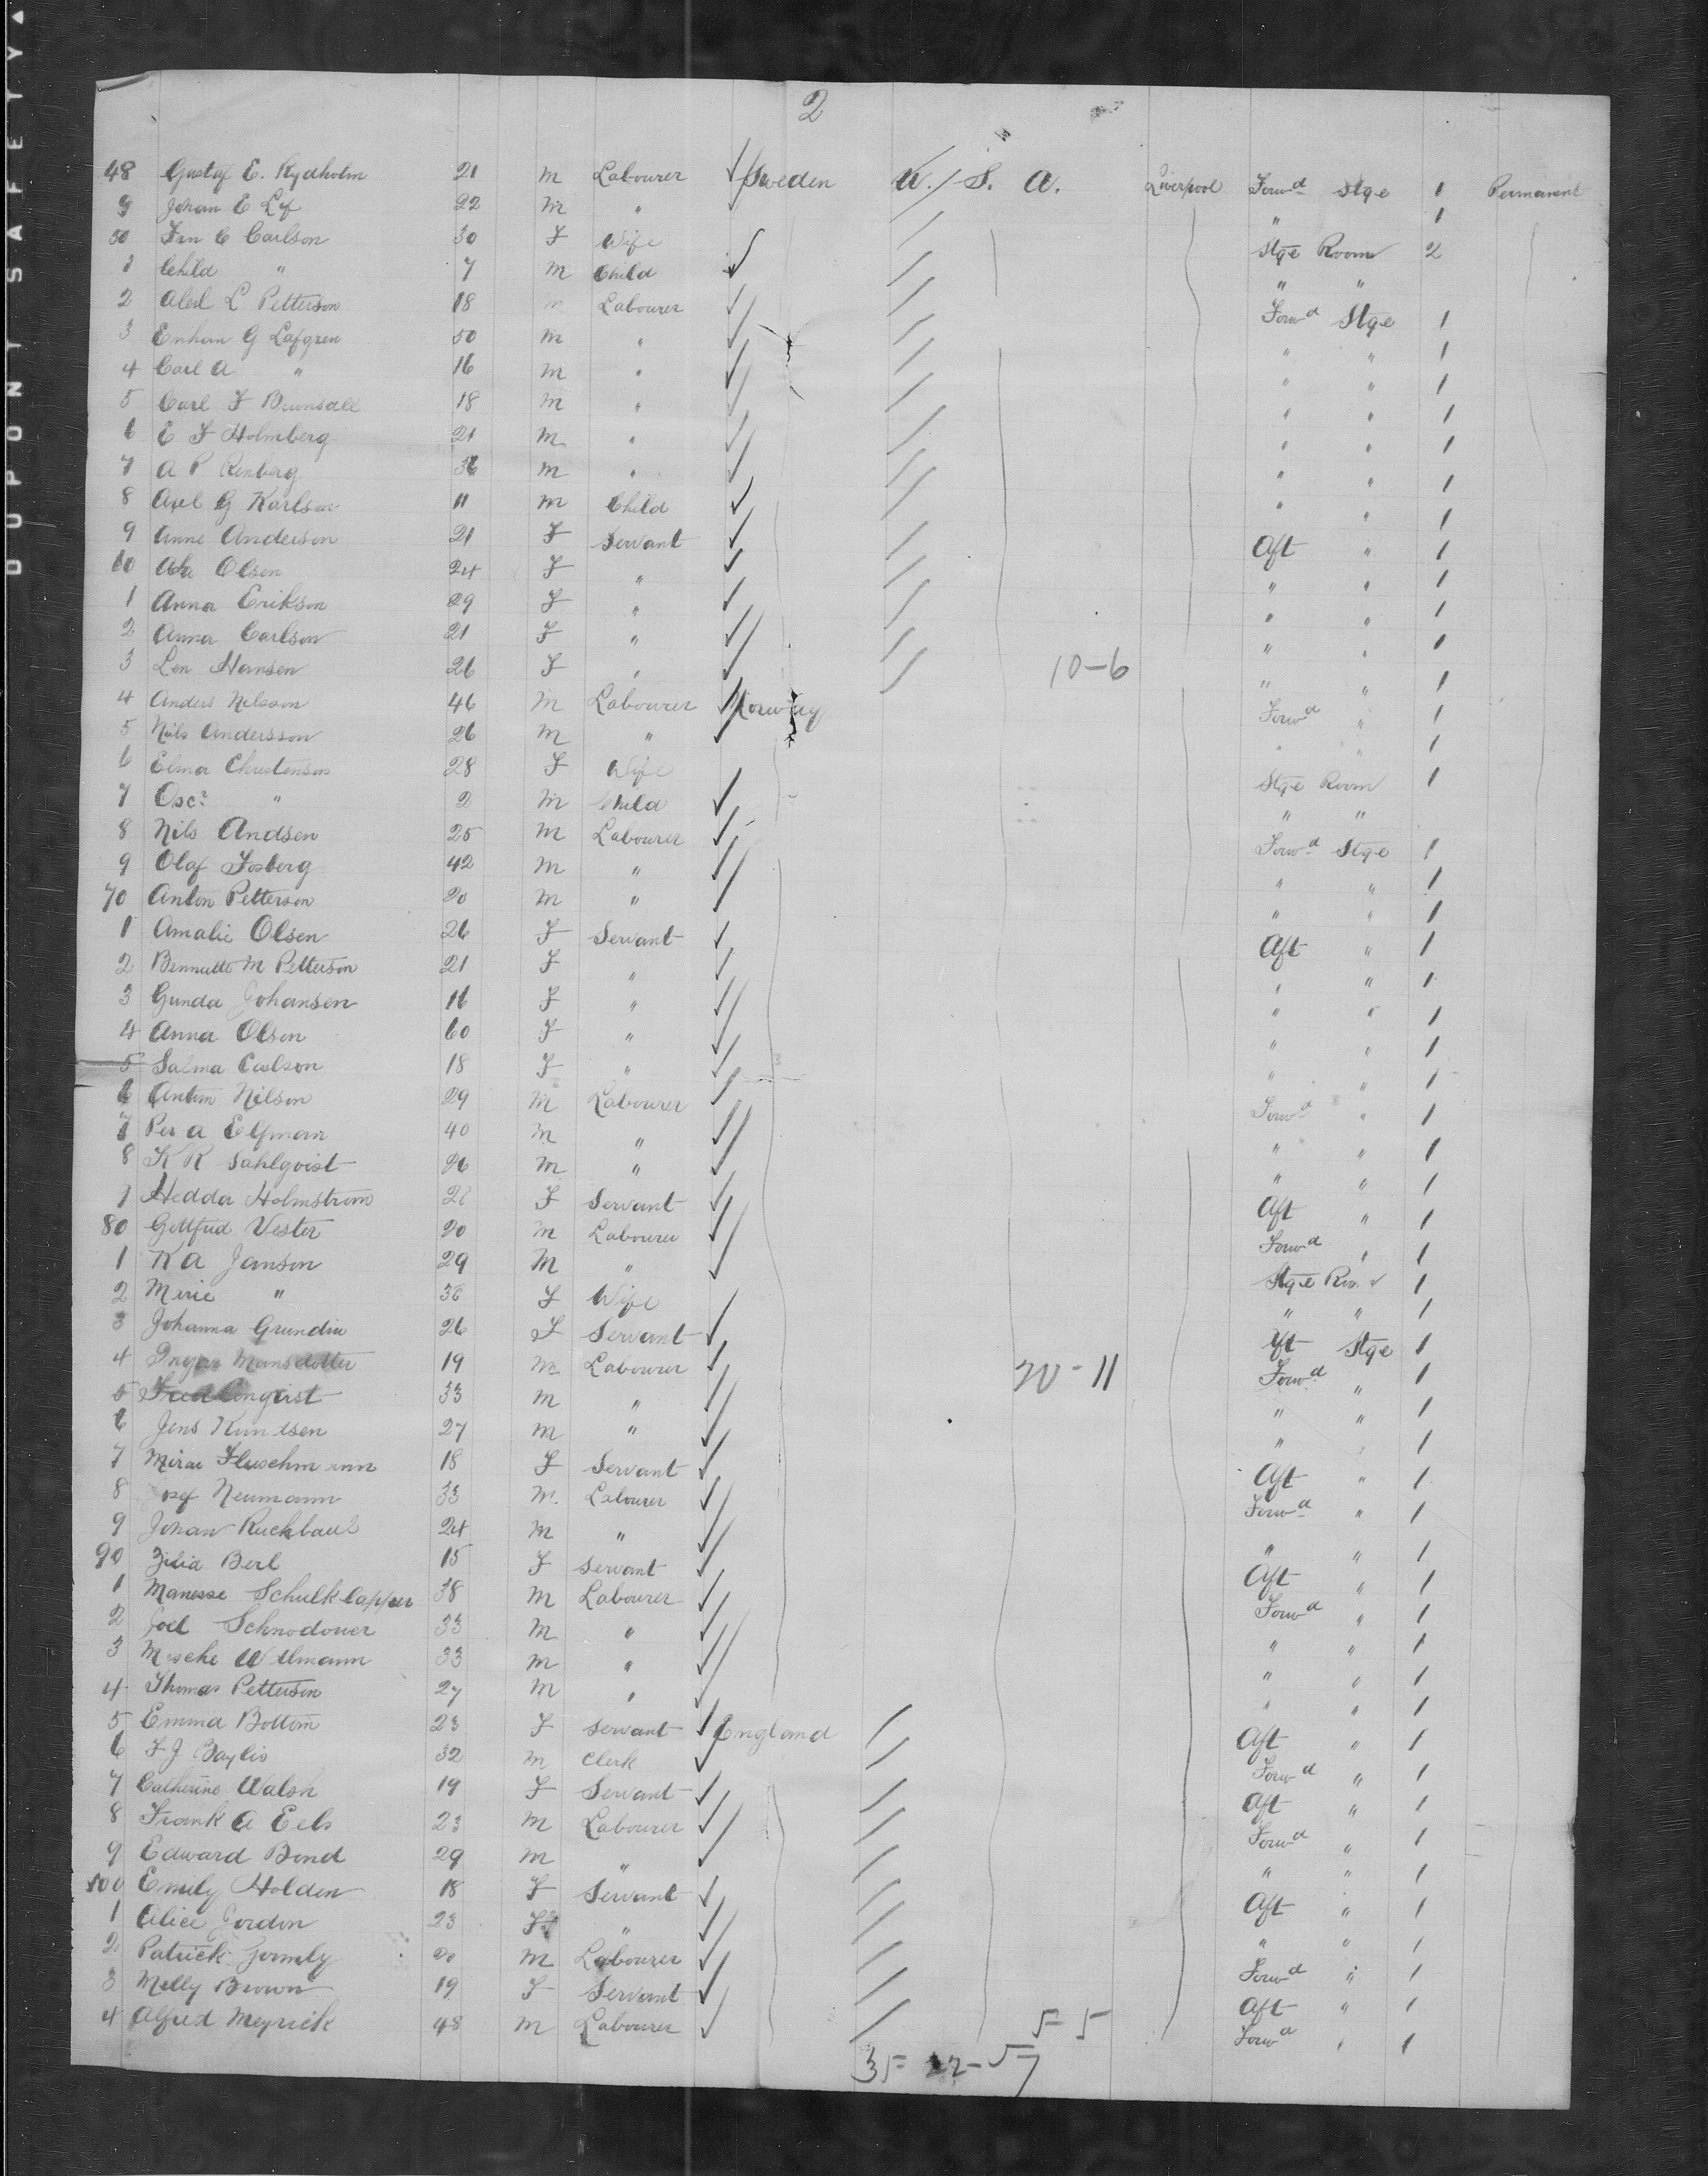 DUPONT SAFETY
2
48 Gustaf E. Rydholm 21 m Labourer Sweden U. S. A. Liverpool Forwd Stge 1 Permanent
9 Johan E Lif 22 m " " 1
50 Carlson 30 F Wife Stge Room 2
1 Child " 7 m Child " "
2 L Petterson 18 Labourer Forwd Stge 1
3 G Lofgren 50 m " " " 1
4 Carl A " 16 m " " " 1
5 Carl F 18 m " " " 1
6 E F Holmberg 21 m " " " 1
7 A P Renberg 36 m " " " 1
8 Axel G Karlson 11 m Child " " 1
9 Anne Anderson 21 F Servant Aft " 1
60 Olsen 24 F " " " 1
1 Anna Erikson 29 F " " " 1
2 Anna Carlson 21 F " " " 1
3 Len Hansen 26 F " 10-6 " " 1
4 Anders Nilsson 46 m Labourer Norway Forwd " 1
5 Nils Andersson 26 m " " " 1
6 Elma Christenson 28 F Wife Stge Room 1
7 Oscr " 2 m Child " "
8 Nils Andsen 25 m Labourer Forwd Stge 1
9 Olaf Fosberg 42 m " " " 1
70 Anton Petterson 20 m " " " 1
1 Amalie Olsen 26 F Servant Aft " 1
2 M Petterson 21 F " " " 1
3 Gunda Johansen 16 F " " " 1
4 Anna Olson 60 F " " " 1
5 Salma Carlson 18 F " " " 1
6 Anton Nilson 29 m Labourer Forwd " 1
7 Per A Elfman 40 m " " " 1
8 K R Sahlqvist 26 m " " " 1
9 Hedda Holmstrom F Servant Aft " 1
80 Gottfrid Vester 20 m Labourer Forwd " 1
1 K A Janson 29 m " Stge Rm 1
2 Merie " 36 F Wife " " 1
3 Johanna Grundin 26 F Servant Aft Stge 1
4 Mansdotter 19 m Labourer 20-11 Forwd " 1
5 33 m " " " 1
6 Jens Knudsen 27 m " " " 1
7 Fleischmann 18 F Servant Aft " 1
8 Neumann 33 m. Labourer Forwd " 1
9 Johan 24 m " " " 1
90 Zilia Berl 15 F Servant Aft " 1
1 Manesse Schulklapper 38 m Labourer Forwd " 1
2 Joel Schnodower 33 m " " " 1
3 33 m " " " 1
4 Thomas Petterson 27 m " " " 1
5 Emma Bottom 23 F Servant England Aft " 1
6 F J Baylis 32 m Clerk Forwd " 1
7 Catherine Walsh 19 F Servant Aft " 1
8 Frank A Eels 23 m Labourer Forwd " 1
9 Edward Bond 29 m " " " 1
100 Emily Holden 18 F Servant Aft " 1
1 Alice Jordon 23 F " " " 1
2 Patrick Gormly 20 m Labourer Forwd " 1
3 Melly Brown 19 F Servant Aft " 1
4 Alfred Meyrick 48 m Labourer 5-5 Forwd " 1
35 22-57